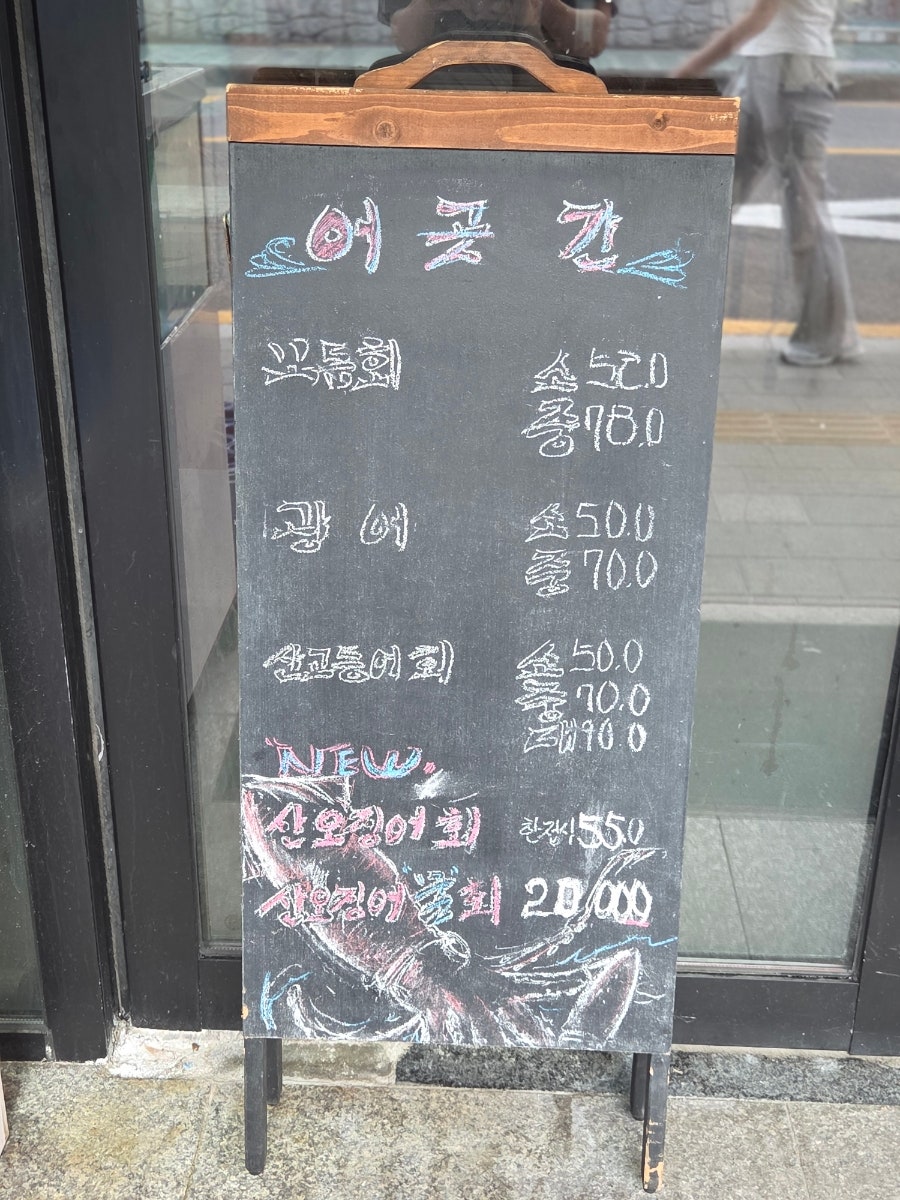 어 곳 간
모듬회 소 52.0
중 78.0
광 어 소 50.0
중 70.0
산고등어회 소 50.0
중 70.0
대 90.0
"NEW.
산오징어회 한접시 55.0
산오징어"물"회 20,000